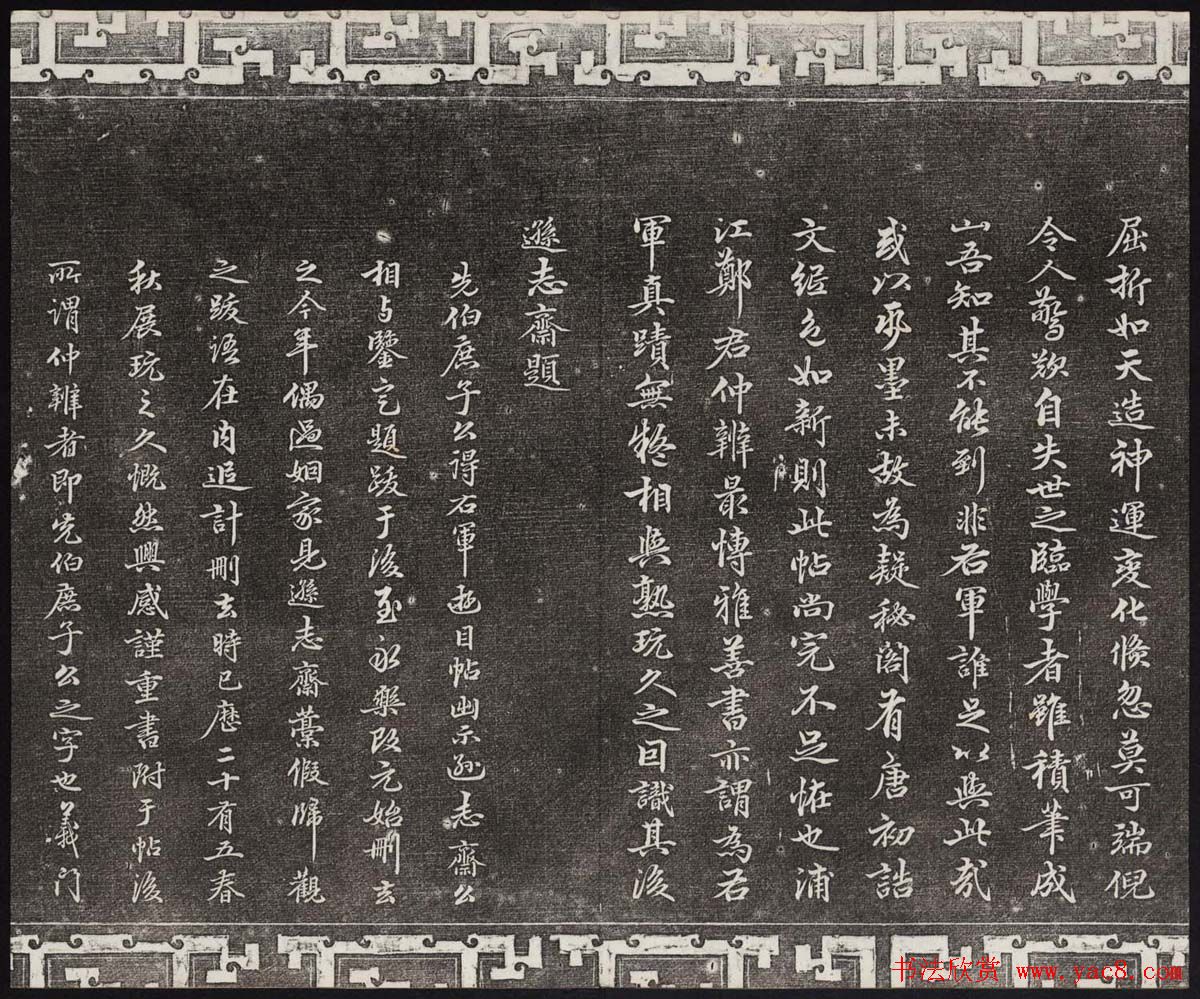 屈折如天造神運變化倐忽莫可端倪
令人驚歎自失世之臨學者雖積筆成
山吾知其不能到非右軍誰足以與此哉
或以爲墨未故為疑秘閣有唐初誥
文紙色如新則此帖尚完不足怪也浦
江鄭君仲辨最慱雅善書亦謂為右
軍真蹟無疑相與熟玩久之因識其後
遜志齋題
先伯庶子公得右軍遊目帖出示遜志齋公
相与鑒定題跋于後至永樂改元始刪去
之今年偶過姻家見遜志齋藁假歸觀
之跋語在内追計刪去時已歷二十有五春
秋展玩之久慨然興感謹重書附于帖後
所謂仲辨者即先伯庶子公之字也義门
书法欣赏 www.yac8.com